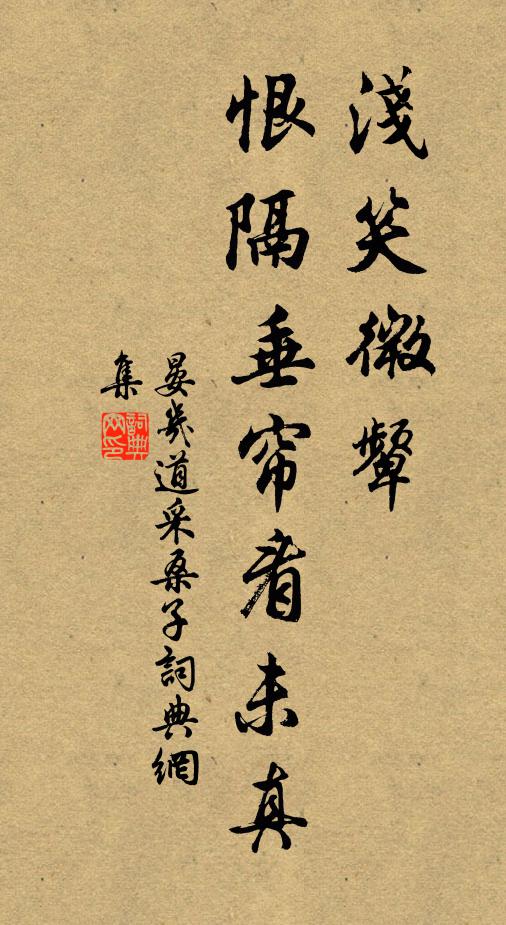 淺笑微顰
恨隔垂帘看未真
晏幾道采桑子詞典網
集
詞典
网印